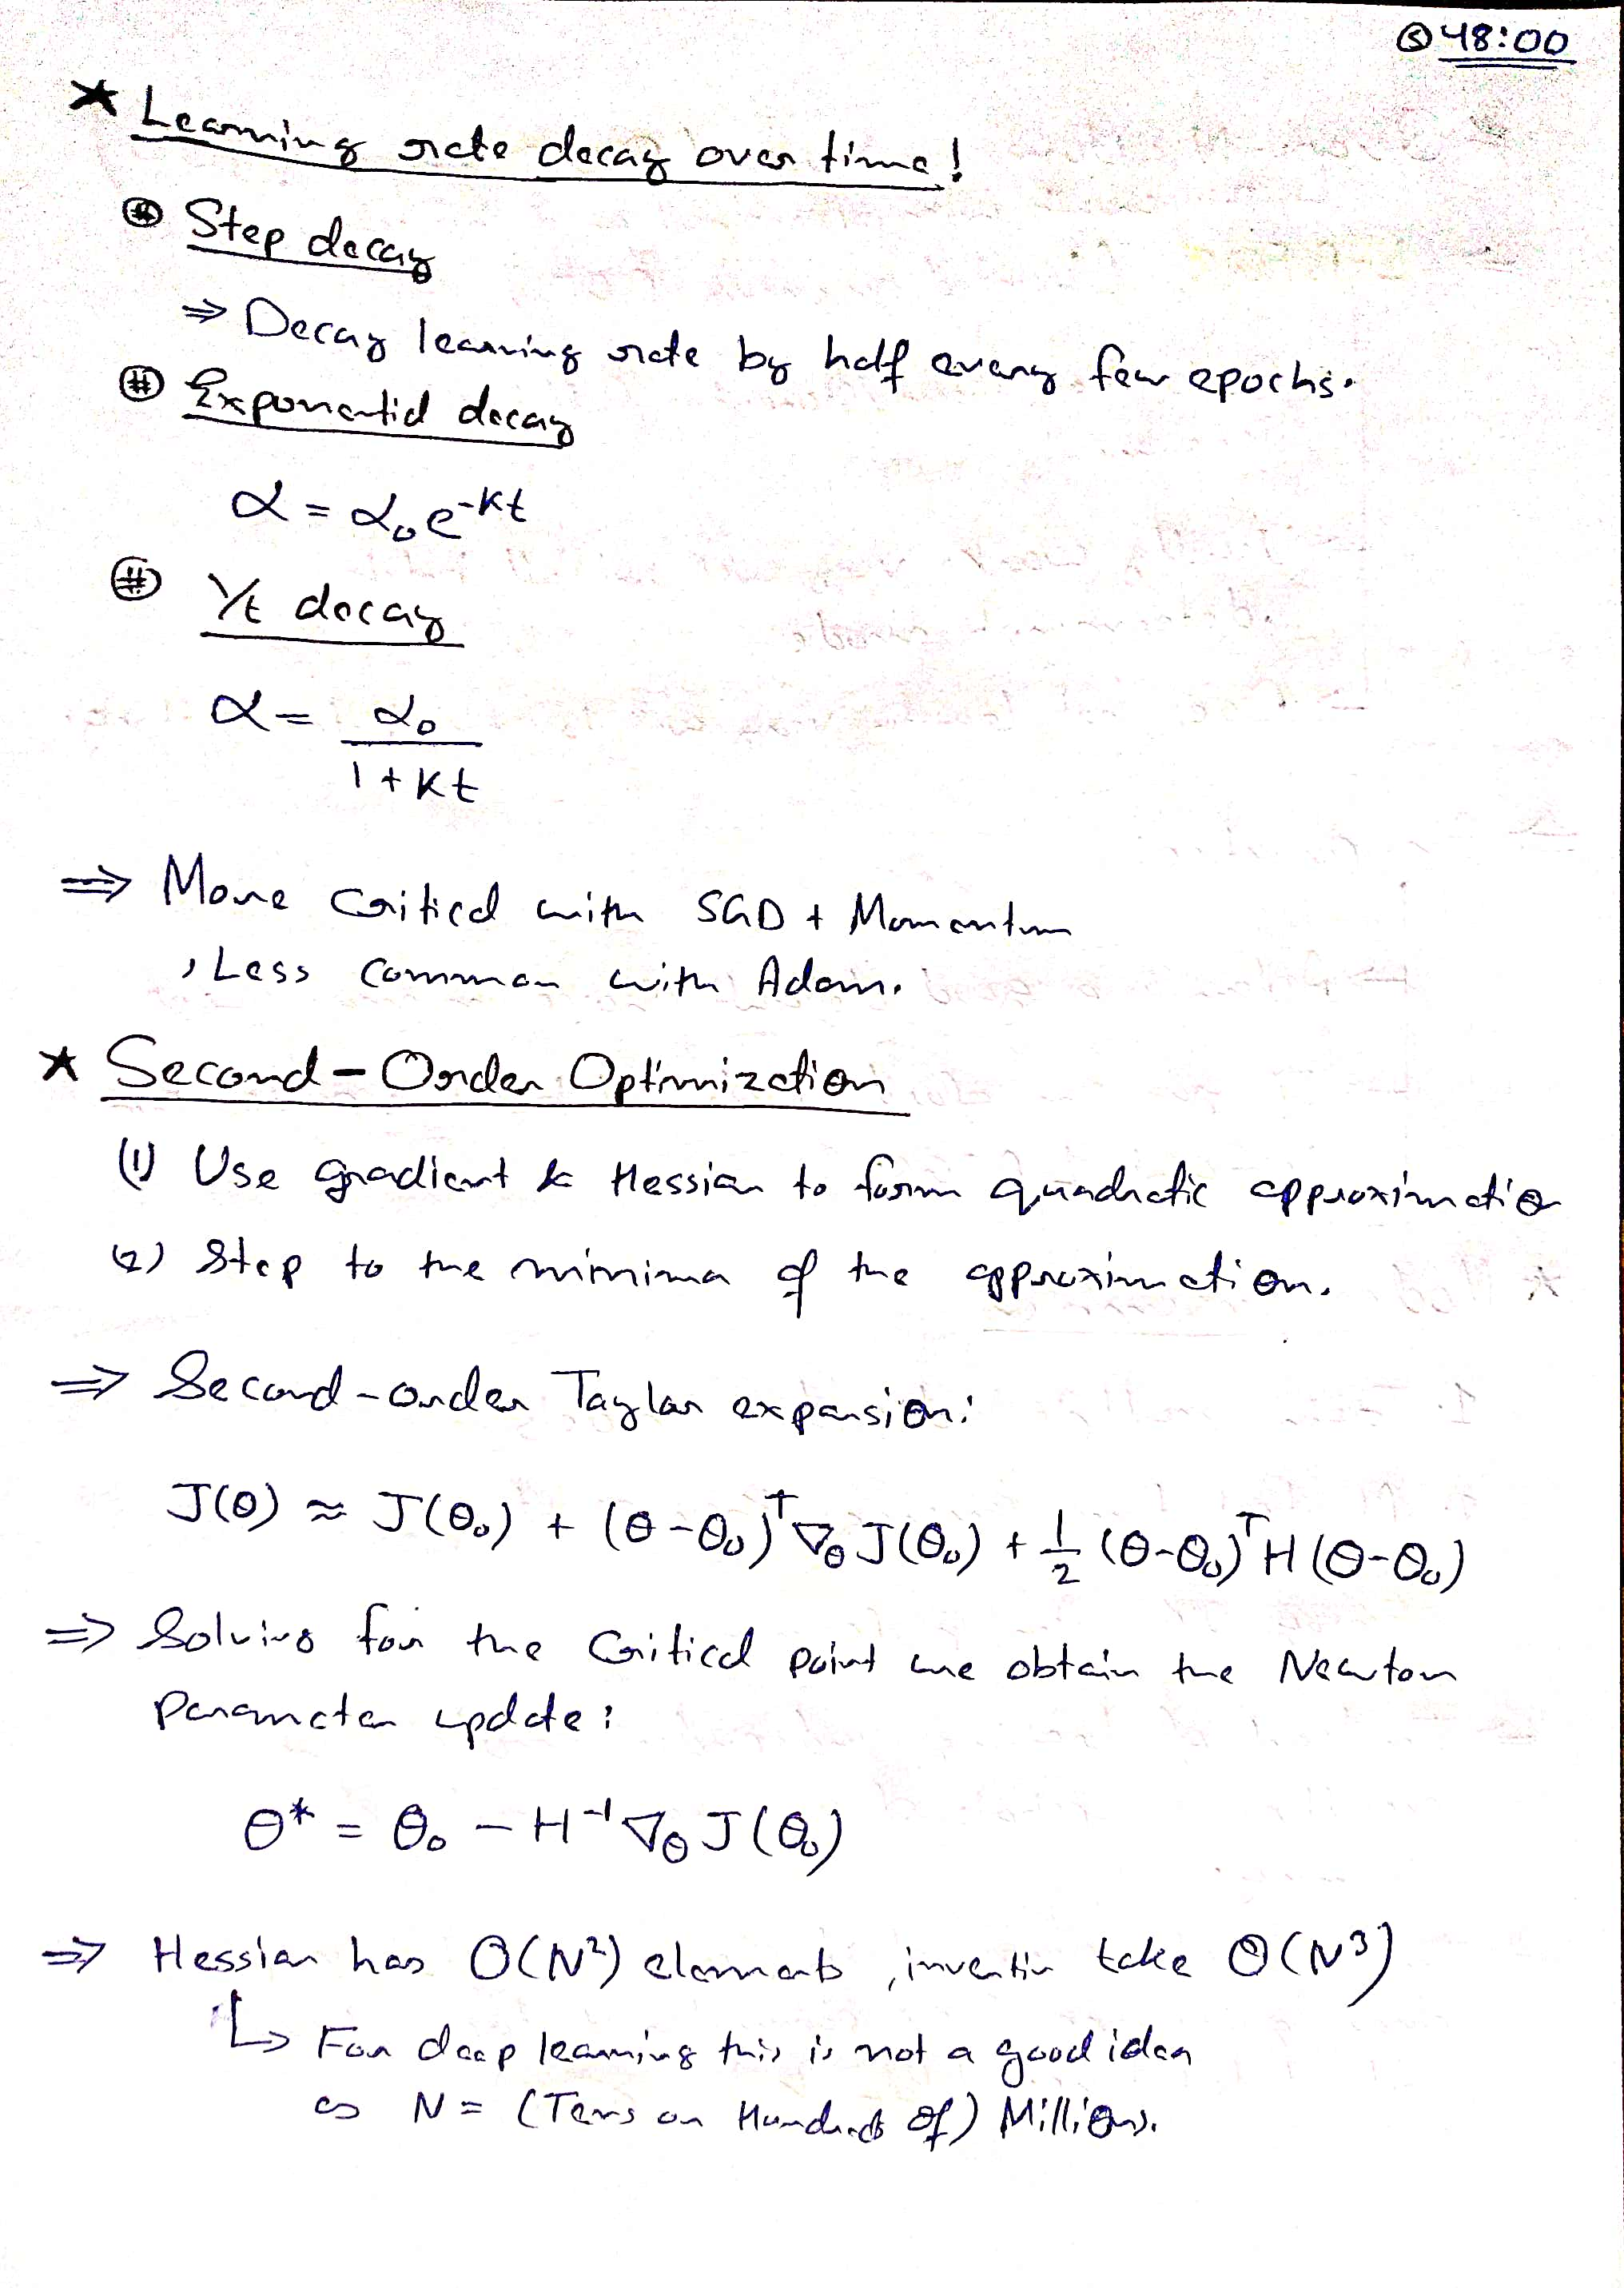 Ⓢ 48:00
* Learning rate decay over time!
⊕ Step decay
⇒ Decay learning rate by half every few epochs.
(#) Exponential decay
α = α₀e^-kt
(#) 1/t decay
α = α₀ / (1 + kt)
⇒ More Critical with SGD + Momentum
, Less Common with Adam.
* Second-Order Optimization
(1) Use gradient & Hessian to form quadratic approximation
(2) Step to the minima of the approximation.
⇒ Second-order Taylor expansion:
J(θ) ≈ J(θ₀) + (θ-θ₀)ᵀ∇θ J(θ₀) + 1/2 (θ-θ₀)ᵀH(θ-θ₀)
⇒ Solving for the Critical point we obtain the Newton
Parameter update:
θ* = θ₀ - H⁻¹∇θ J(θ₀)
⇒ Hessian has O(N²) elements, invertin take O(N³)
↳ For deep learning this is not a good idea
as N = (Tens or Hundreds of) Millions.